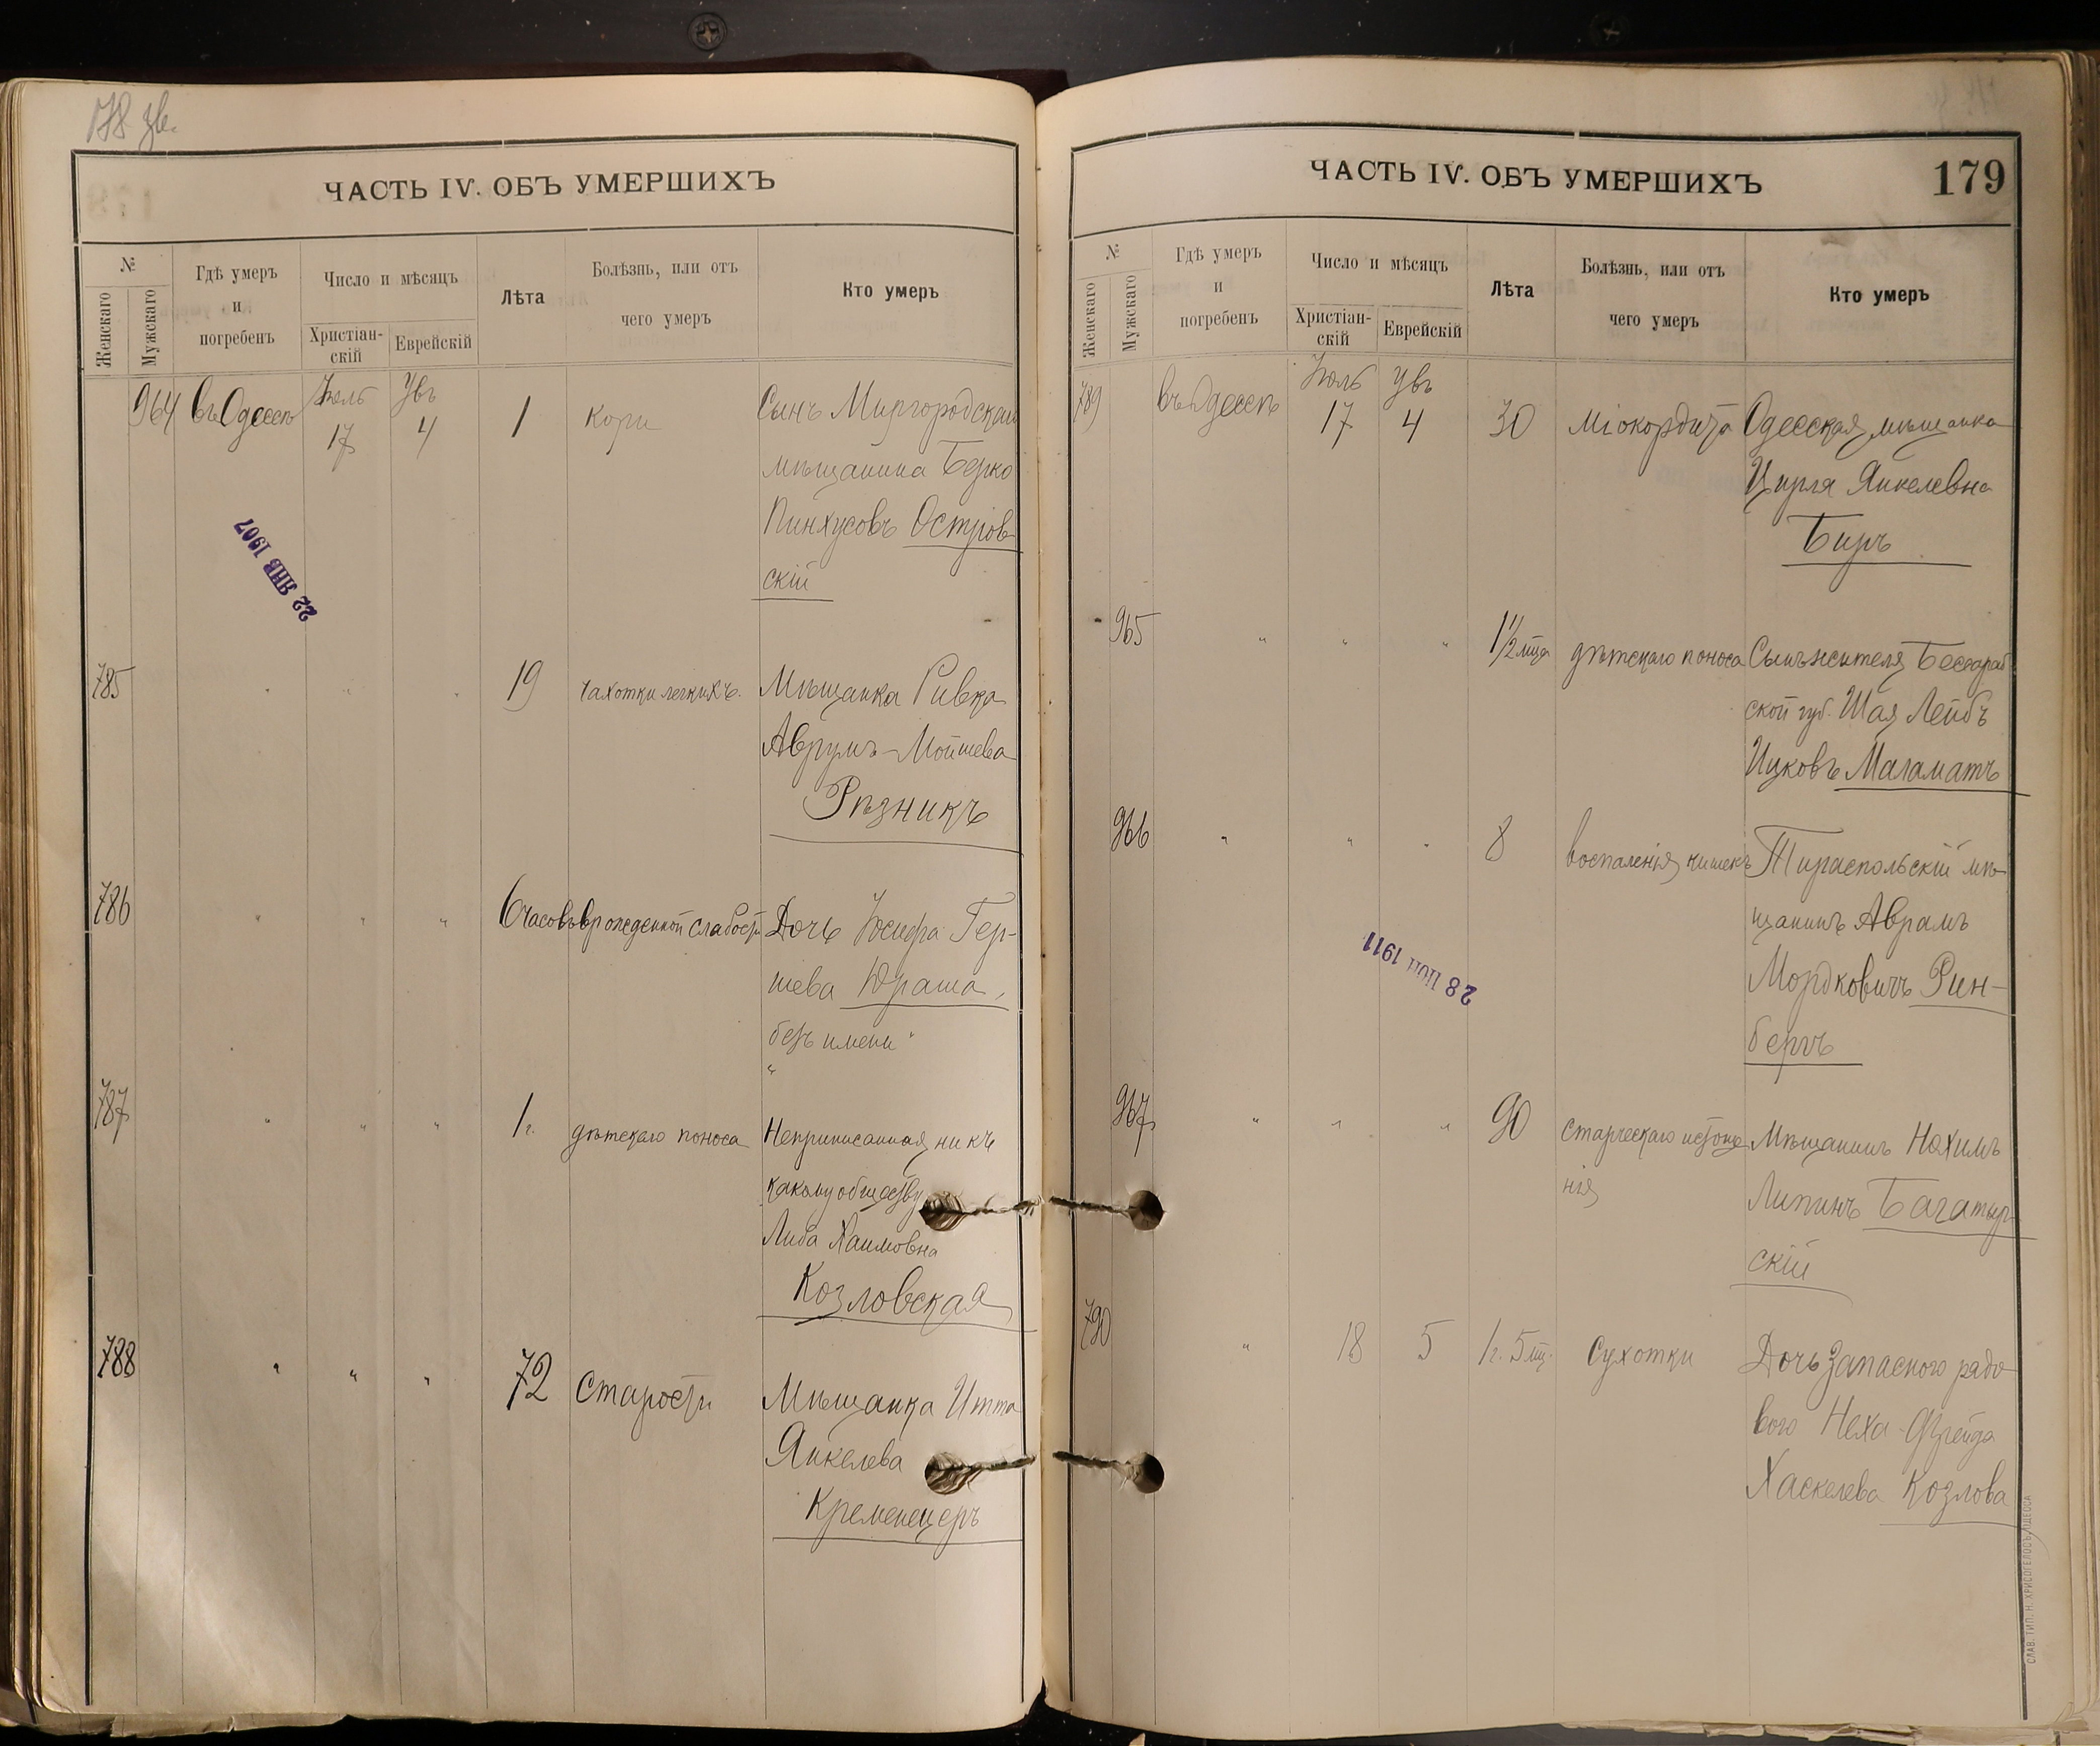 178 зв.
ЧАСТЬ IV. ОБЪ УМЕРШИХЪ
№
Женскаго
Мужскаго
Гдѣ умеръ
и
погребенъ
Число и мѣсяцъ
Христіан-
скій
Еврейскій
Лѣта
Болѣзнь, или отъ
чего умеръ
Кто умеръ
964 въ Одессѣ Іюль 17 Увъ 4 1 кори Сынъ Миргородскаго
мѣщанина Берко
Пинхусовъ Островскій
22 ЯНВ 1907
785 " " " 19 чахотки легкихъ. Мѣщанка Ривка
Аврумъ-Мойшева
Рѣзникъ
786 " " " 6 часовъ врожденной слабости Дочь Іосифа Гер-
шева Юраша,
безъ имени "
"
787 " " " 1 г. дѣтскаго поноса Неприписанная ни къ
какому обществу
Либа Хаимовна
Козловская
788 " " " 72 Старости Мѣщанка Итта
Янкелева
Кременецеръ
ЧАСТЬ IV. ОБЪ УМЕРШИХЪ
179
№
Женскаго
Мужскаго
Гдѣ умеръ
и
погребенъ
Число и мѣсяцъ
Христіан-
скій
Еврейскій
Лѣта
Болѣзнь, или отъ
чего умеръ
Кто умеръ
789 въ Одессѣ Іюль 17 Увъ 4 30 міокордита Одесская мѣщанка
Цирля Янкелевна
Биръ
965 " " " 1 1/2 мца дѣтскаго поноса Сынъ жителя Бессараб
ской губ. Шая Лейбъ
Ицковъ Маламатъ
966 " " " 8 воспаленія кишекъ Тираспольскій мѣ-
щанинъ Аврамъ
Мордковичъ Рин-
бергъ
28 ІЮН 1911
967 " " " 90 старческаго истоще Мѣщанинъ Нахимъ
нія Липинъ Багатыр-
скій
790 " 18 5 1 г. 5 мц. Сухотки Дочь запасного рядо
вого Неха-Фрейда
Хаскелева Козлова
СЛАВ. ТИП. Н. ХРИСОГЕЛОСЪ, ОДЕССА